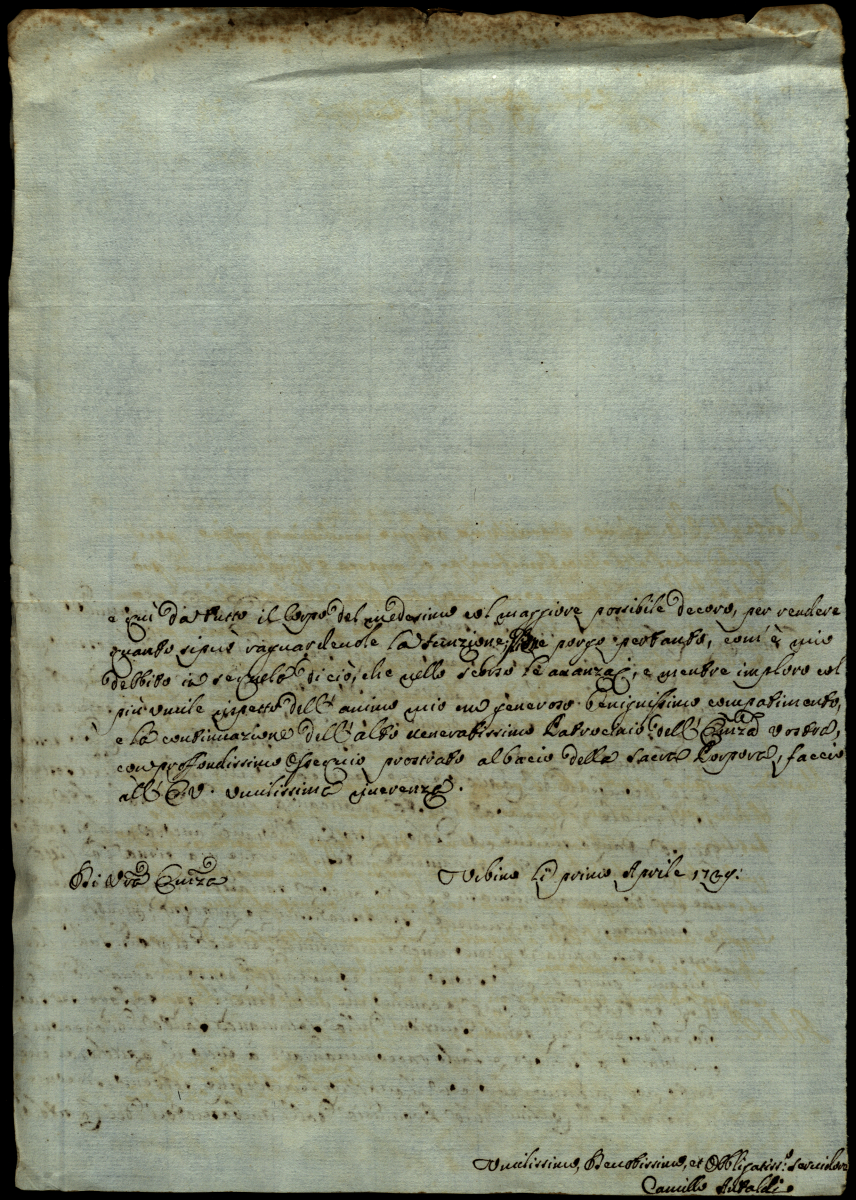 e qui da tutto il Corpo del medesimo col maggiore possibile decoro, per rendere
quanto si può raguardeuole la funzione; porgo pertanto, com'è mio
debbito in sequela di ciò, che nello scorso le auanzai, e mentre imploro col
più umile rispetto dell'animo mio un generoso benignissimo compatimento,
e la continuazione dell'alto ueneratissimo Patrocinio dell'Eminza Vostra,
con profondissimo ossequio prostrato al bacio della Sacra Porpora, faccio
all'E.V. umilissima riuerenza.
Di Vra Eminza
Vrbino li primo Aprile 1739.
Vmilissimo, Deuotissimo, et Obbligatiss.o Seruidore
Camillo Antaldi